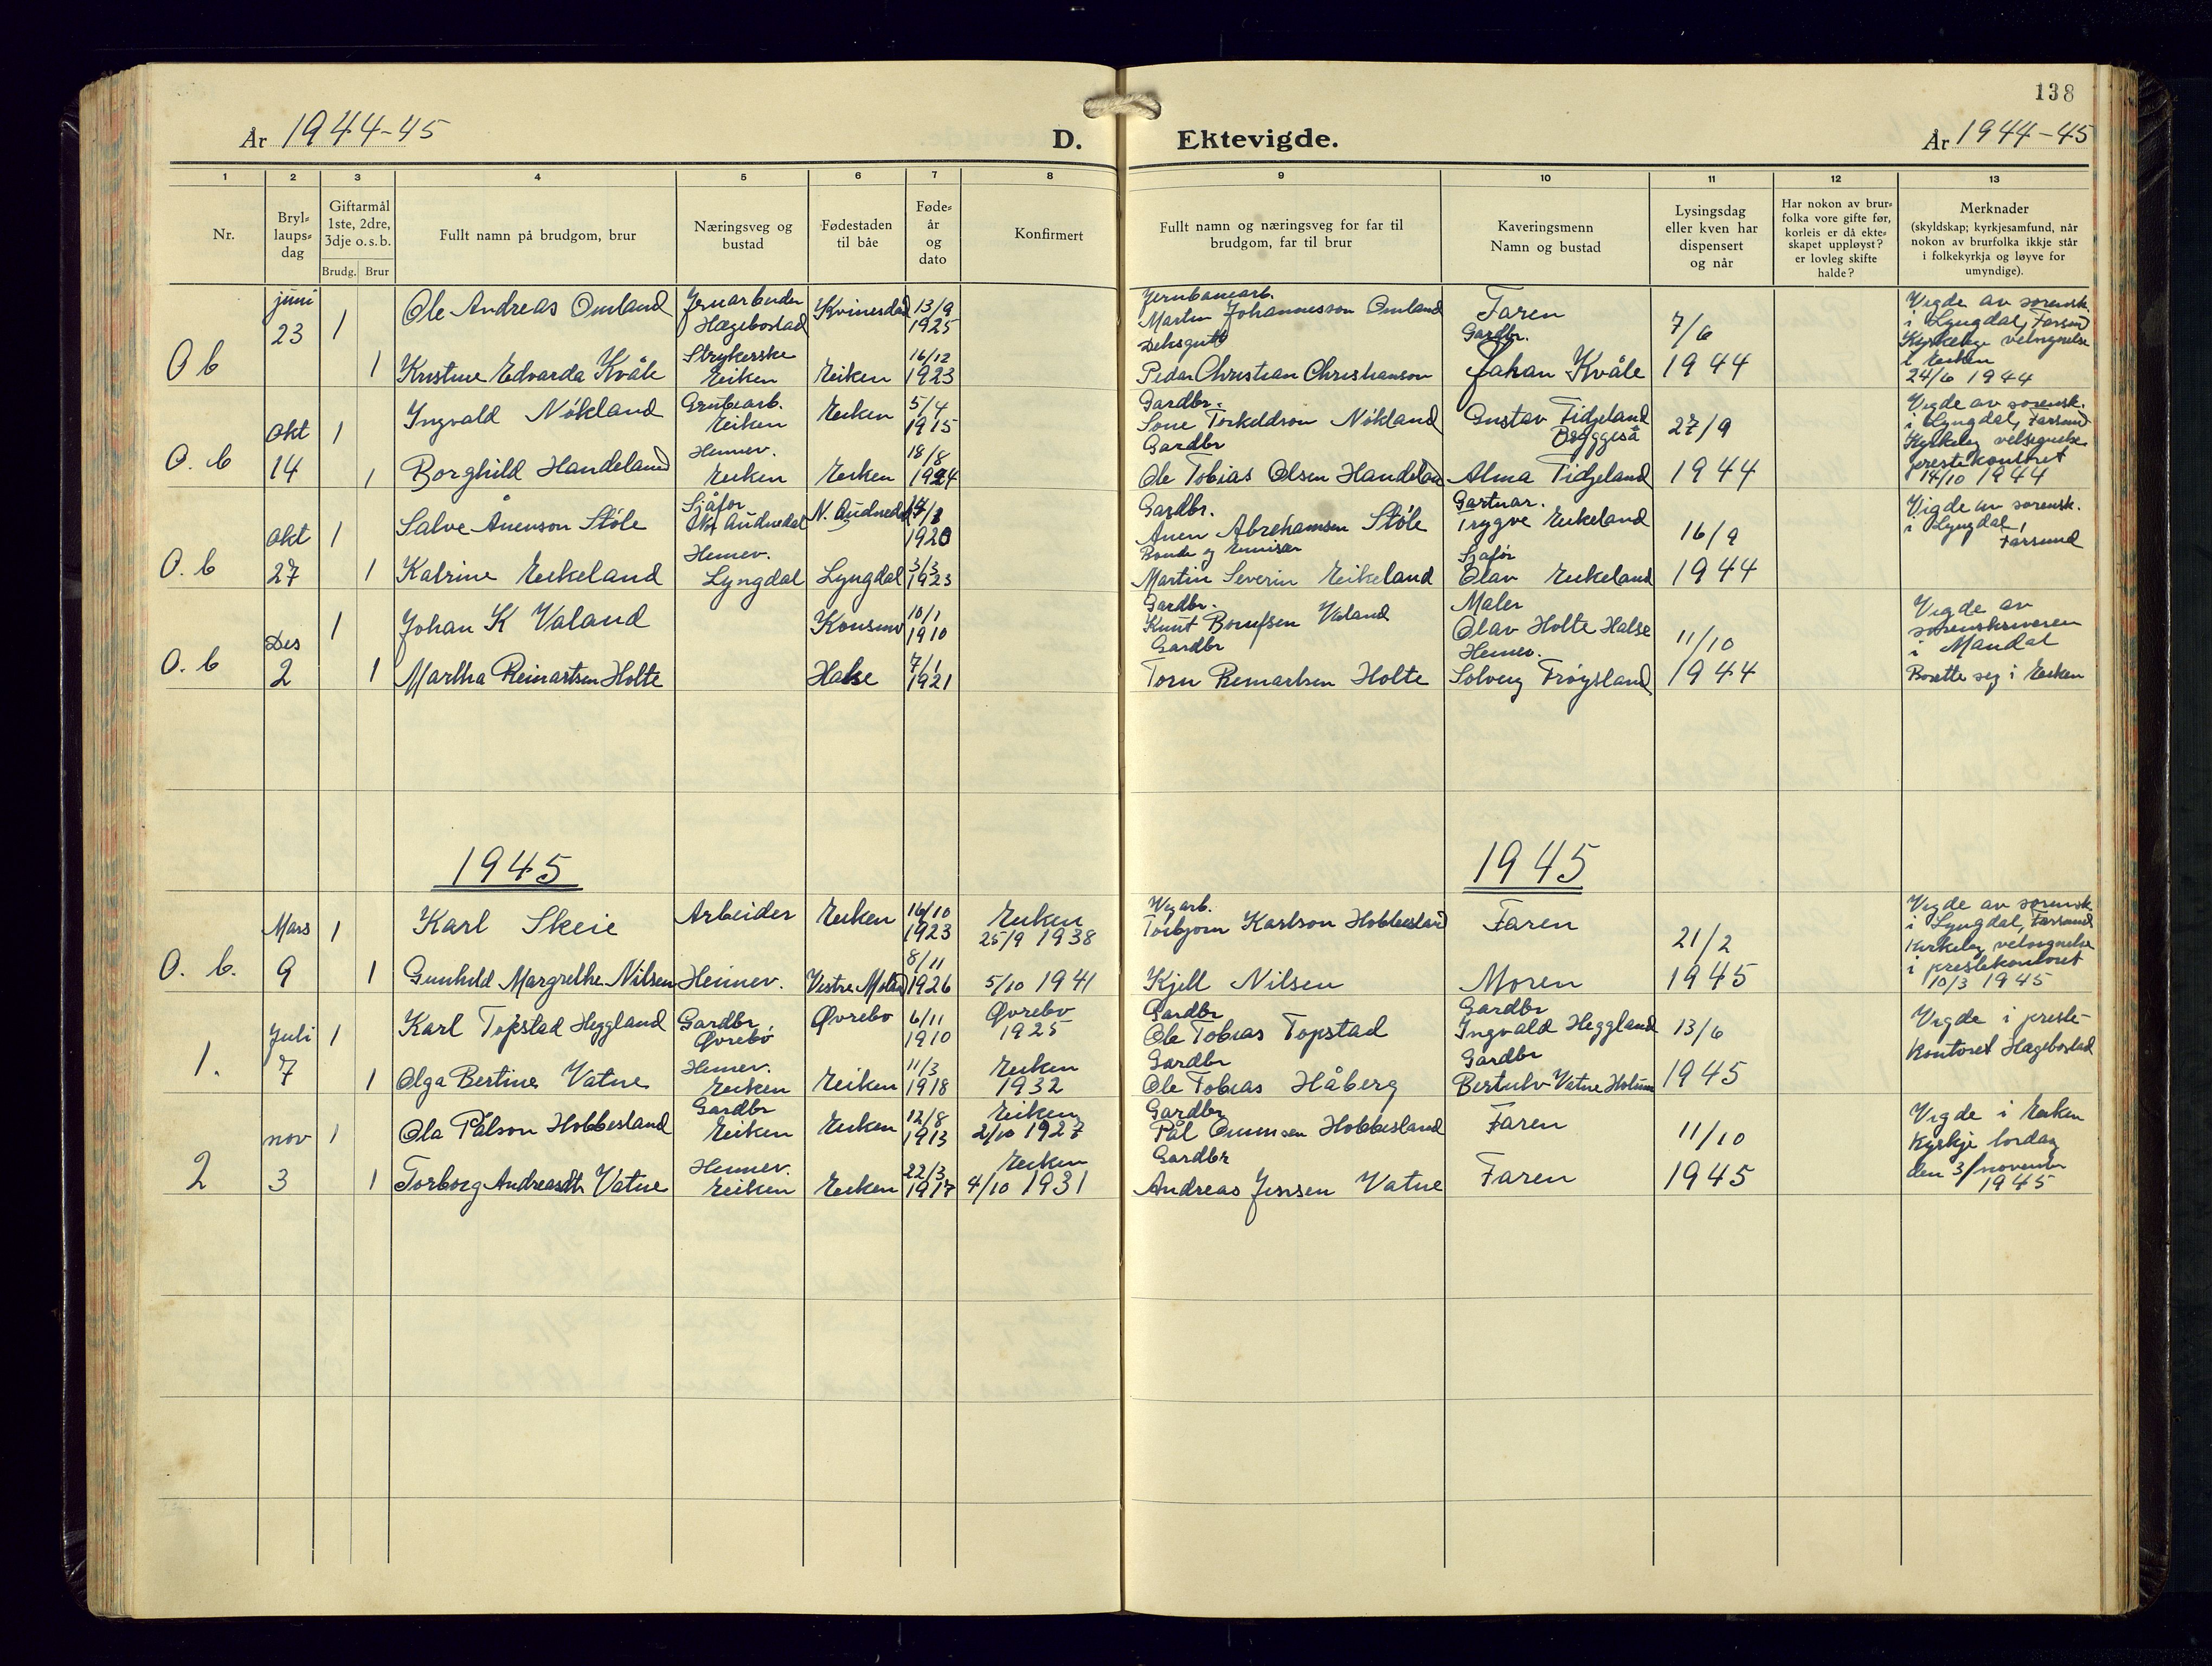 138
År 1944-45
D. Ektevigde.
År 1944-45
1 2 3 4 5 6 7 8 9 10 11 12 13
Nr.
Bryl-
laups-
dag
Giftarmål
1ste, 2dre,
3dje o.s.b.
Brudg. Brur
Fullt namn på brudgom, brur
Næringsveg og
bustad
Fødestaden
til båe
Føde-
år
og
dato
Konfirmert
Fullt namn og næringsveg for far til
brudgom, far til brur
Kaveringsmenn
Namn og bustad
Lysingsdag
eller kven har
dispensert
og når
Har nokon av brur-
folka vore gifte før,
korleis er då ekte-
skapet uppløyst?
er lovleg skifte
halde?
Merknader
(skyldskap; kyrkjesamfund, når
nokon av brurfolka ikkje står
i folkekyrkja og løyve for
umyndige).
O b
juni
23
1
Ole Andreas Omland
Jernarbeider
Hægebostad
Kvinesdal
13/9
1925
Jernbanearb.
Martin Johannesson Omland
Faren
7/6
1944
Vigde av sorensk.
i Lyngdal, Farsund
Kyrkeleg velsignelse
i Eiken
24/6 1944
1
Kristine Edvarda Kvåle
Strykerske
Eiken
Eiken
16/12
1923
Peder Christian Christianson
Gardbr.
Johan Kvåle
O. b
Okt
14
1
Ingvald Nökland
Grubearb.
Eiken
Eiken
5/4
1915
Gardbr.
Sone Torkeldson Nökland
Gustav Tidjeland
Byggeså
27/9
1944
Vigde av sorensk.
i Lyngdal, Farsund
Kyrkeleg velsignelse
prestekontoret
14/10 1944
1
Borghild Handeland
Heimev.
Eiken
Eiken
18/8
1924
Gardbr
Ole Tobias Olsen Handeland
Alma Tidjeland
O. b
Okt
27
1
Salve Anenson Stöle
Sjåfør
Nor Audnedal
N. Audnedal
1920
Gardbr.
Anen Abrahamsen Stöle
Gartnar.
Trygve Eikeland
16/9
1944
Vigde av sorensk.
i Lyngdal,
Farsund
1
Katrine Eikeland
Heimev.
Lyngdal
Lyngdal
3/3
1923
Bonde og Emissær
Martin Severin Eikeland
Sjåfør
Olav Eikeland
O. b
Des
2
1
Johan K Valand
Konsmo
10/1
1910
Gardbr.
Knut Valand
Maler
Olav Holte Halse
11/10
1944
Vigde av
sorenskriveren
i Mandal
Bosette seg i Eiken
1
Martha Reinartsen Holte
Halse
7/1
1921
Gardbr
Torn Reinartsen Holte
Heimev.
Solveig Frøysland
1945
1945
O. b.
Mars
9
1
Karl Skeie
Arbeider
Eiken
16/10
1923
Eiken
25/9 1938
Vegarb.
Torbjørn Karlson Hobbesland
Faren
21/2
1945
Vigde av sorensk
i Lyngdal, Farsund
kirkeleg velsignelse
i prestekontoret
10/3 1945
1
Gunhild Margrethe Nilsen
Heimev.
Vestre Moland
8/11
1926
5/10 1941
Kjell Nilsen
Moren
1.
Juli
7
1
Karl Topstad Heggland
Gardbr
Øvrebö
Øvrebo
6/11
1910
Øvrebo
1925
Gardbr
Ole Tobias Topstad
Gardbr
Ingvald Heggland
13/6
1945
Vigde i preste-
kontoret Hægebostad
1
Olga Bertine Vatne
Heimev.
Eiken
Eiken
11/3
1918
Eiken
1932
Gardbr
Ole Tobias Håberg
Gardbr
Bertulv Vatne Holum
2
nov
3
1
Ola Pålson Hobbesland
Gardbr
Eiken
Eiken
12/8
1913
Eiken
2/10 1927
Gardbr
Pål Omunsen Hobbesland
Faren
11/10
1945
Vigde i Eiken
Kyrkje lordag
den 3/november
1945
1
Torborg Andreasdtr Vatne
Heimev.
Eiken
Eiken
22/3
1917
Eiken
4/10 1931
Gardbr
Andreas Jensen Vatne
Faren